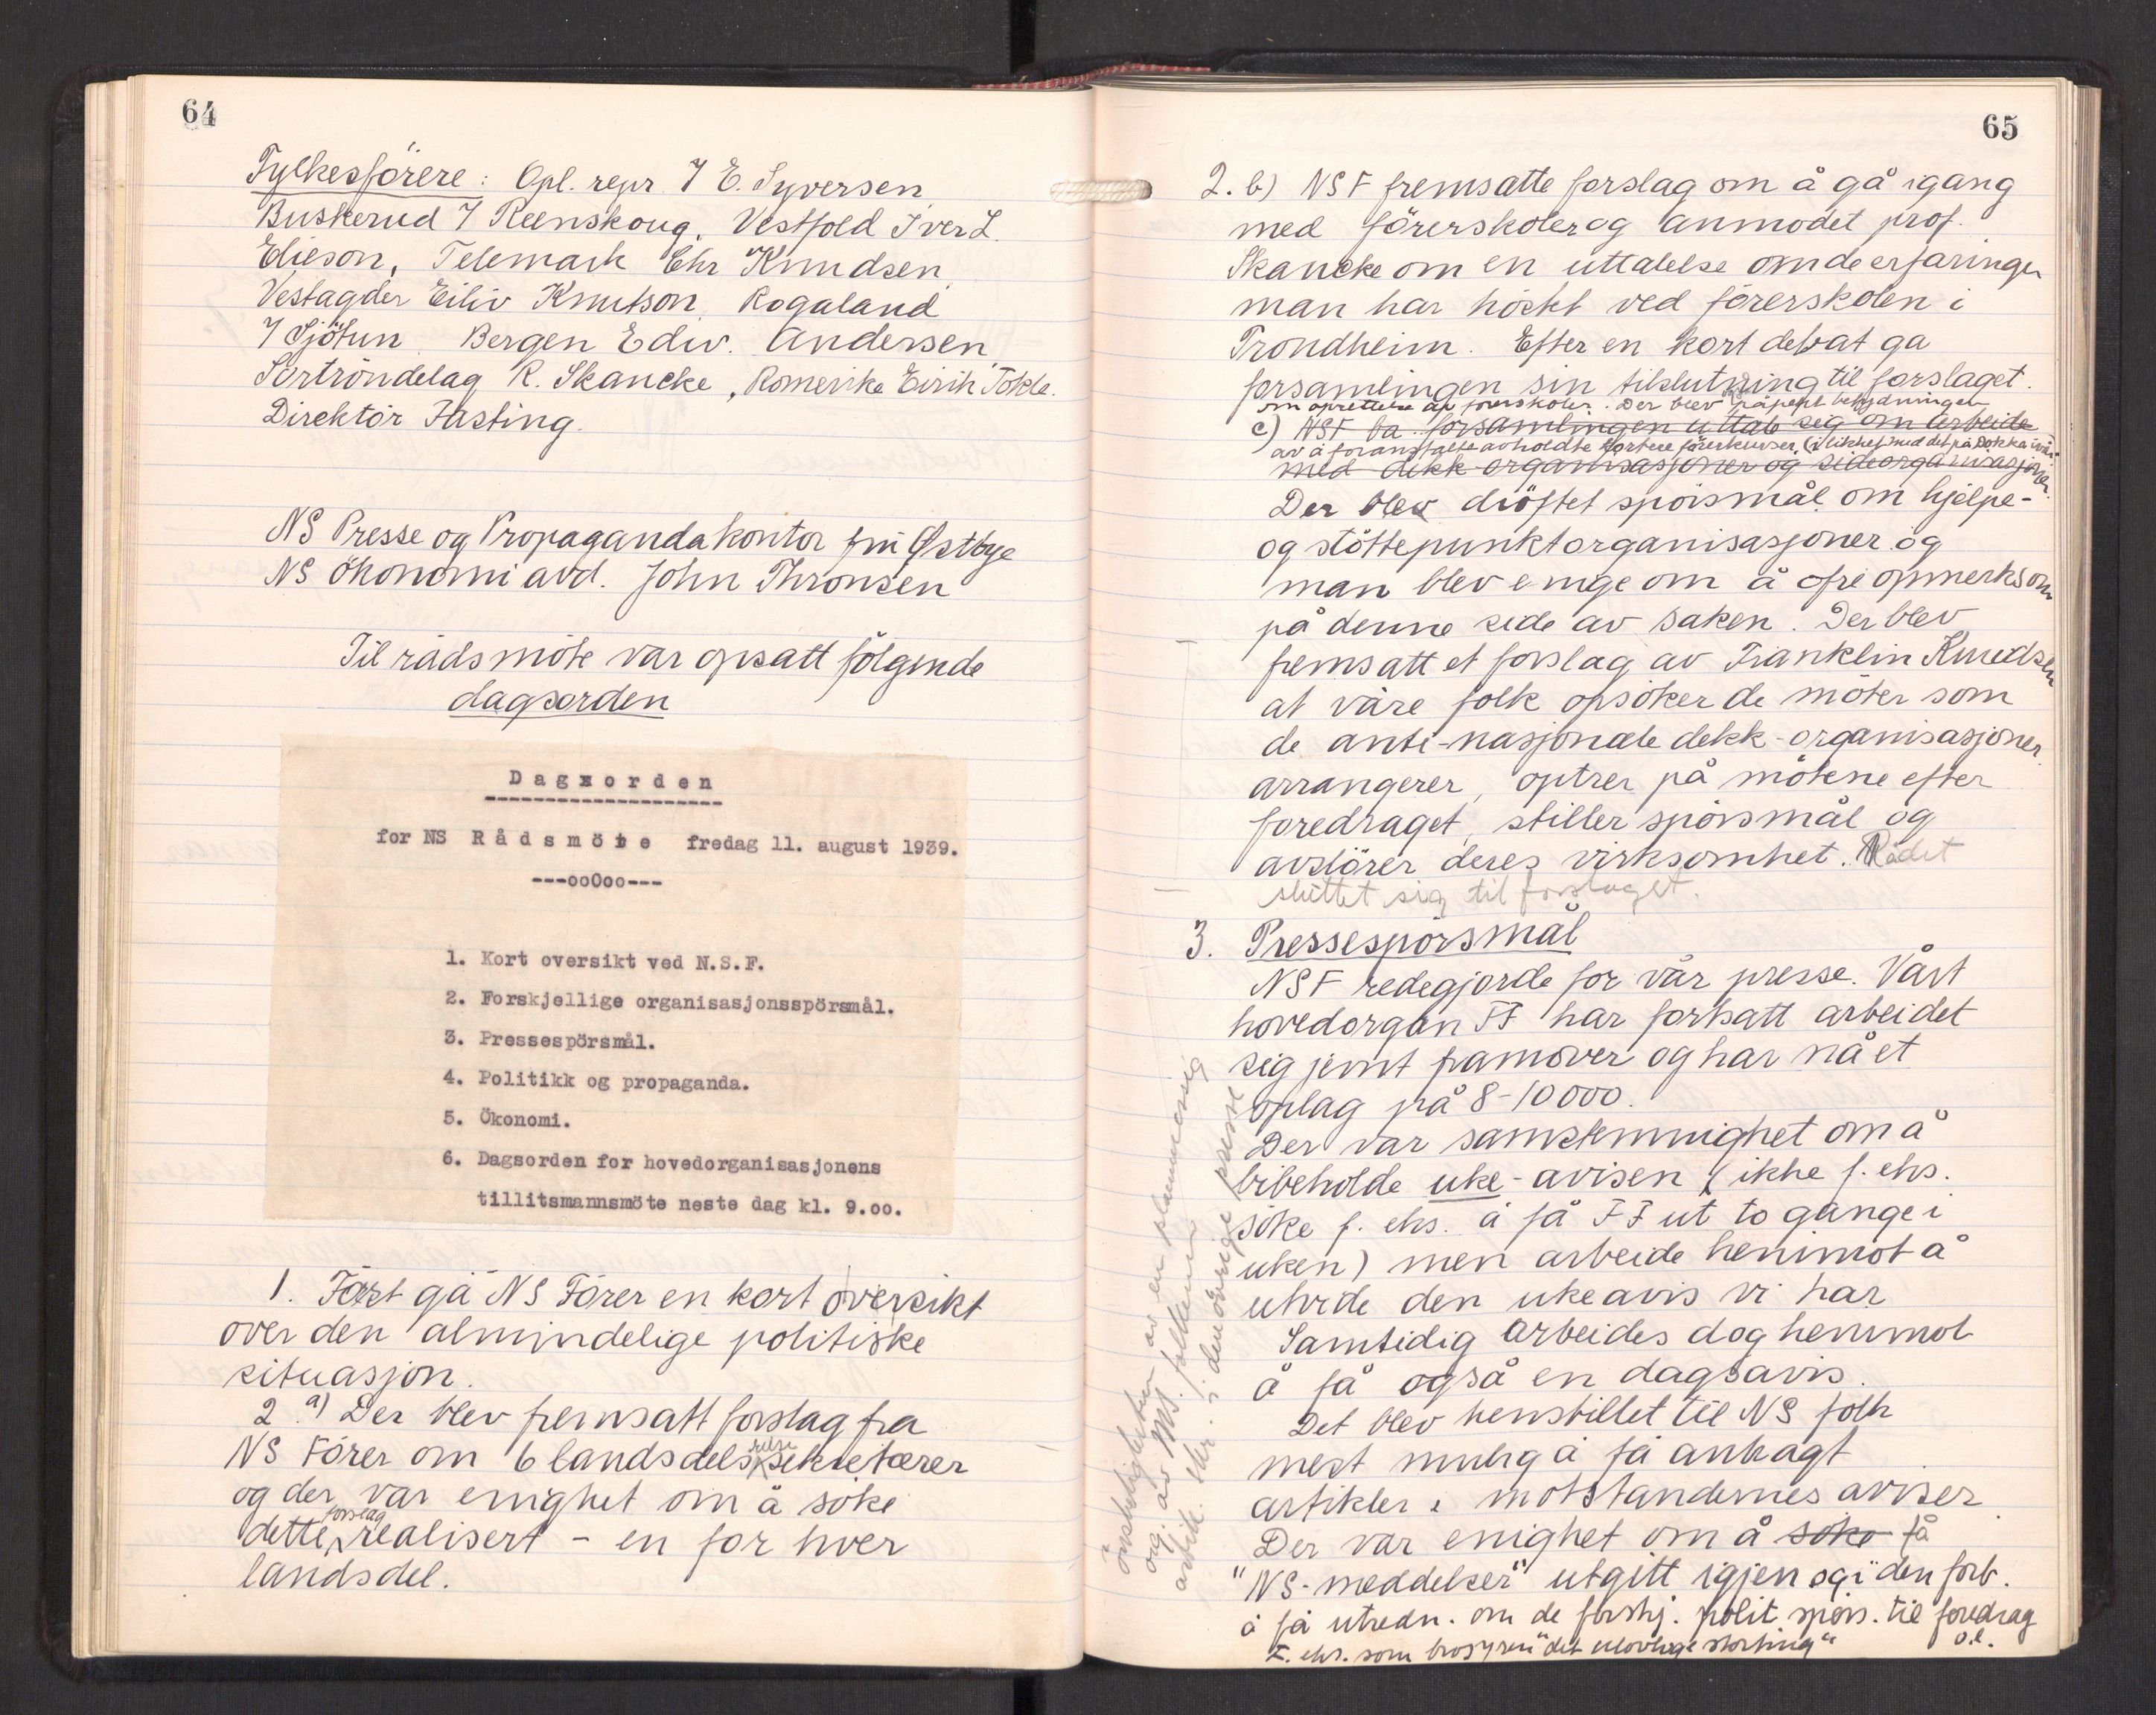 64
Fylkesförere: Opl. repr. J E. Syversen,
Buskerud J Reenskoug, Vestfold Iver L.
Elieson, Telemark Chr Knudsen,
Vestagder Eiliv Knutson, Rogaland
J Sjötun. Bergen Edw. Andersen,
Sörtröndelag R. Skancke, Romerike Eirik Tokle.
Direktör Fasting.
NS Presse og Propagandakontor fru Østbye
NS Ökonomi avd. John Thronsen
Til rådsmöte var opsatt fölgende
dagsorden
Dagsorden
for NS Rådsmöte fredag 11. august 1939.
---ooOoo---
1. Kort oversikt ved N.S.F.
2. Forskjellige organisasjonsspörsmål.
3. Pressespörsmål.
4. Politikk og propaganda.
5. Ökonomi.
6. Dagsorden for hovedorganisasjonens
tillitsmannsmöte neste dag kl. 9.oo.
1. Först ga NS Förer en kort oversikt
over den almindelige politiske
situasjon.
2 a) Der blev fremsatt forslag fra
NS Förer om 6 landsdelssekretærer
og der var enighet om å söke
dette forslag realisert - en for hver
landsdel.
65
2. b) NSF fremsatte forslag om å gå igang
med förerskoler og anmodet prof.
Skancke om en uttalelse om de erfaringer
man har höstet ved förerskolen i
Trondheim. Efter en kort debat ga
forsamlingen sin tilslutning til forslaget.
om oprettelse av förerskoler. Der blev påpekt betydningen
c) NSF ba forsamlingen uttale sig om arbeide
av å foranstalte avholdte kortere förerkurser, (i likhet med det på Dokka i vår
med dekk-organisasjoner og sideorganisasjoner.
Der blev dröftet spörsmål om hjelpe-
og stöttepunktorganisasjoner og
man blev enige om å ofre opmerksom
på denne side av saken. Der blev
fremsatt et forslag av Franklin Knudsen
at våre folk opsöker de möter som
de anti-nasjonale dekk-organisasjoner
arrangerer, optrer på mötene efter
foredraget, stiller spörsmål og
avslörer deres virksomhet. Rådet
sluttet sig til forslaget.
3. Pressespörsmål
NSF redegjorde for vår presse. Vårt
hovedorgan FF har fortsatt arbeidet
sig jevnt framover og har nå et
oplag på 8-10000.
Der var samstemmighet om å
bibeholde uke-avisen (ikke f. eks.
söke f. eks. å få FF ut to gange i
uken) men arbeide henimot å
utvide den ukeavis vi har
Samtidig arbeides dog henimot
å få også en dagsavis.
Det blev henstillet til NS folk
mest mulig å få anbragt
artikler i motstandernes aviser
Der var enighet om å söke få
"NS-meddelser" utgitt igjen og i den forb.
å få utredn. om de forskj. polit spörs. til foredrag
o.l.
F. eks. som brosyren "det ulovlige storting"
önskeligheten av en planmessig
org. av NS. folkene
artik. skr. i den övrige presse